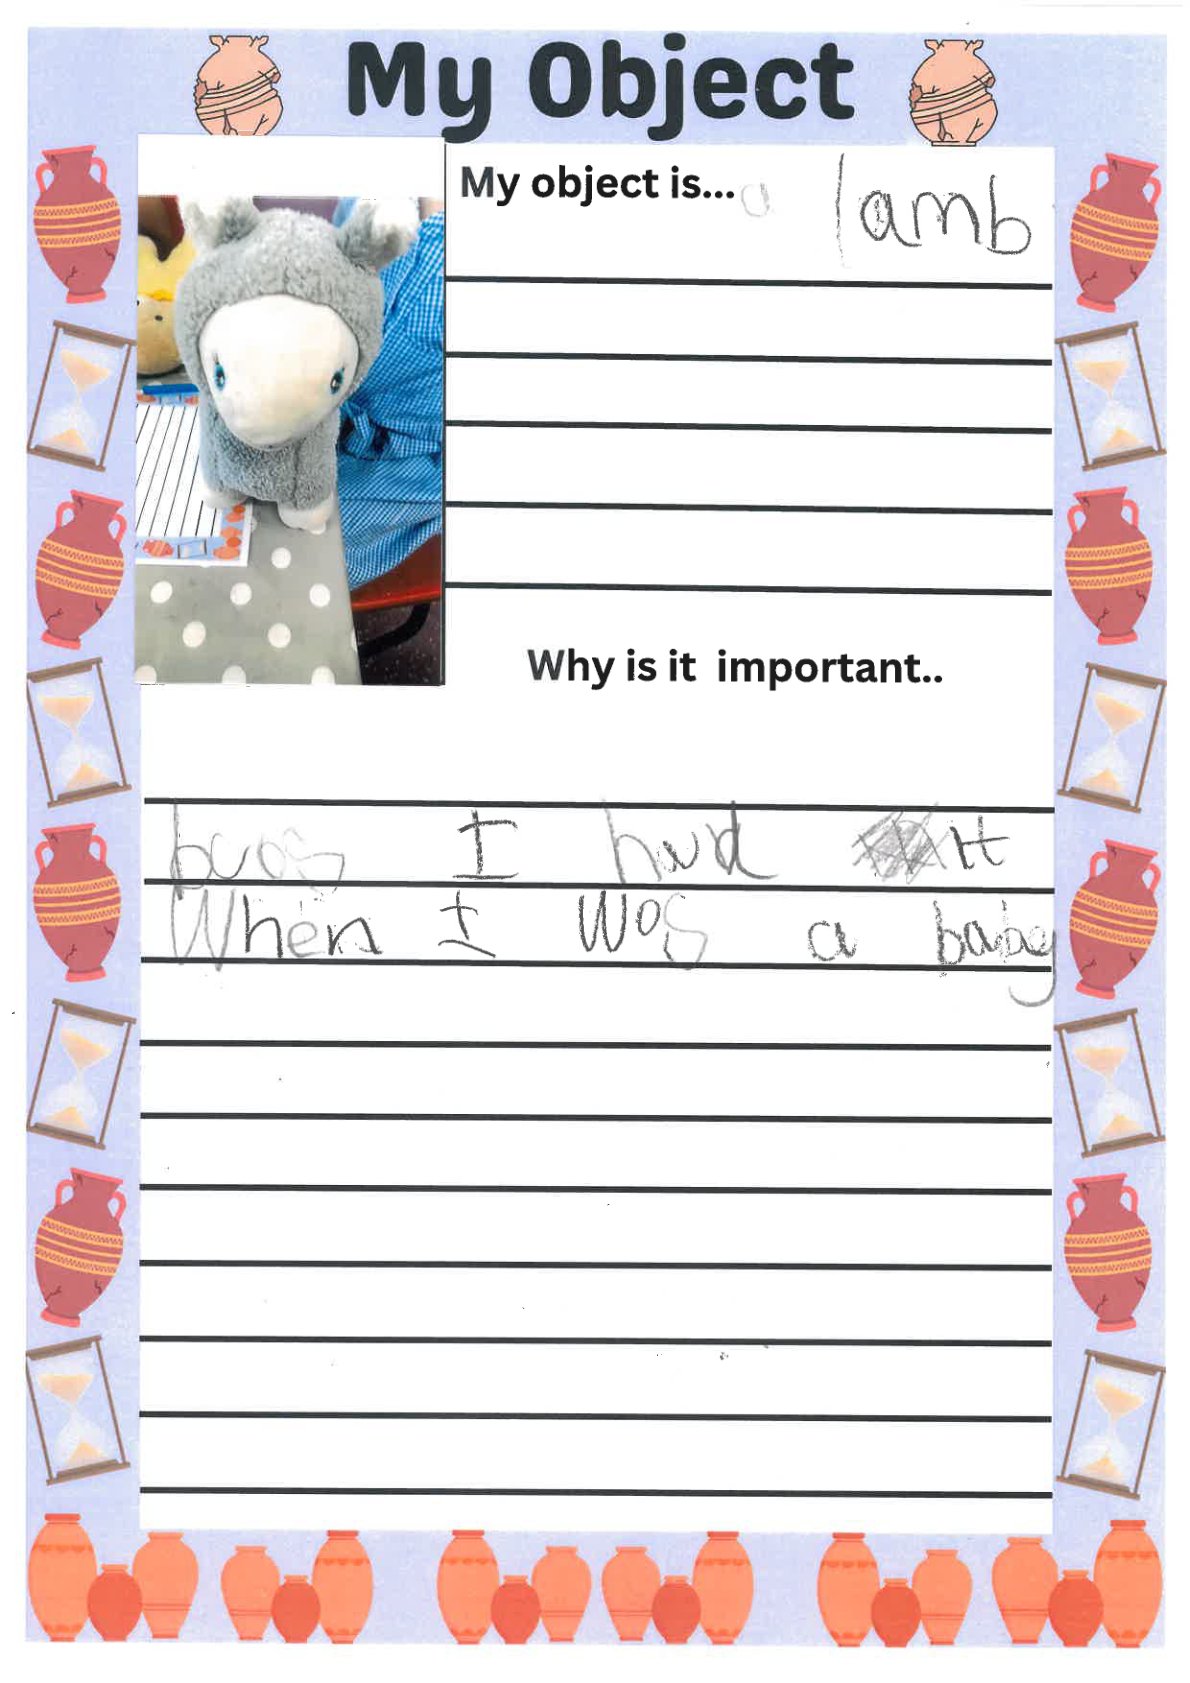 My Object
My object is... a lamb
Why is it important..
bucos I had it
When I Was a baby